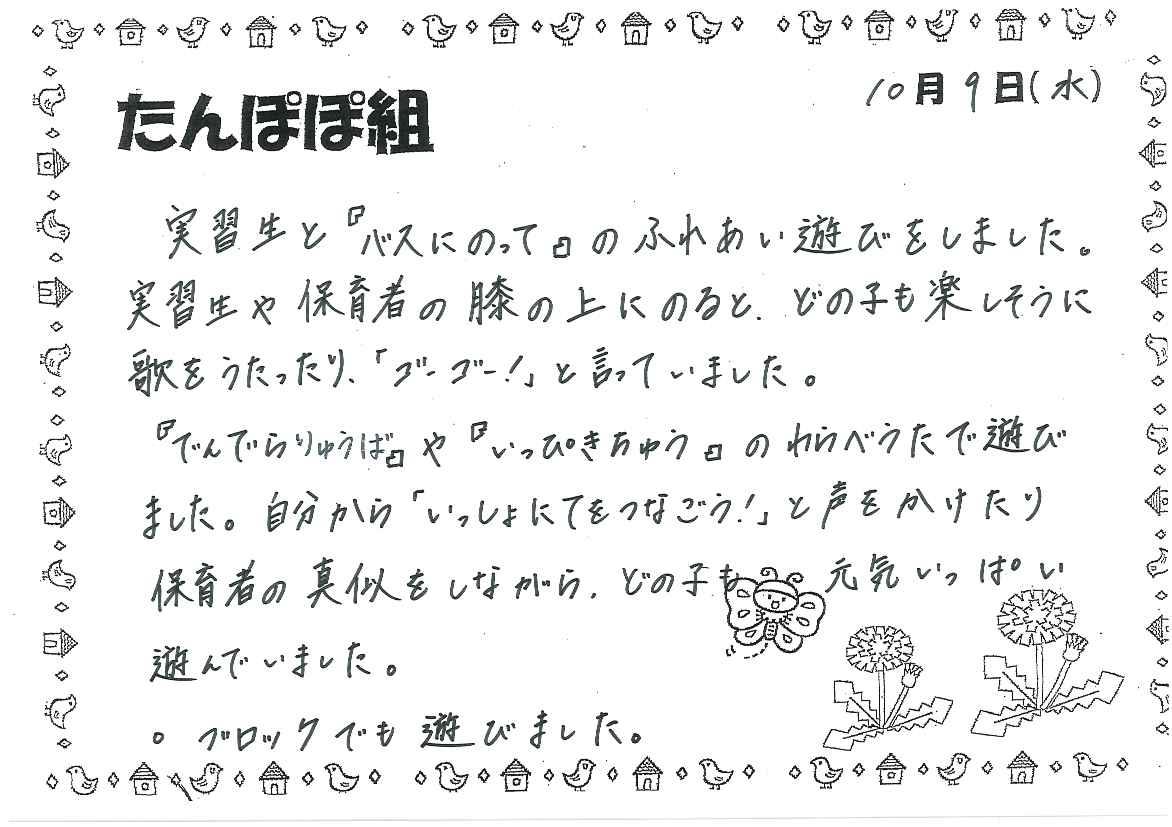 たんぽぽ組
10月9日(水)
実習生と『バスにのって』のふれあい遊びをしました。
実習生や保育者の膝の上にのると、どの子も楽しそうに
歌をうたったり、「ゴーゴー!」と言っていました。
『でんでらりゅうば』や『いっぴきちゅう』のわらべうたで遊び
ました。自分から「いっしょにてをつなごう!」と声をかけたり
保育者の真似をしながら、どの子も元気いっぱい
遊んでいました。
○ ブロックでも遊びました。